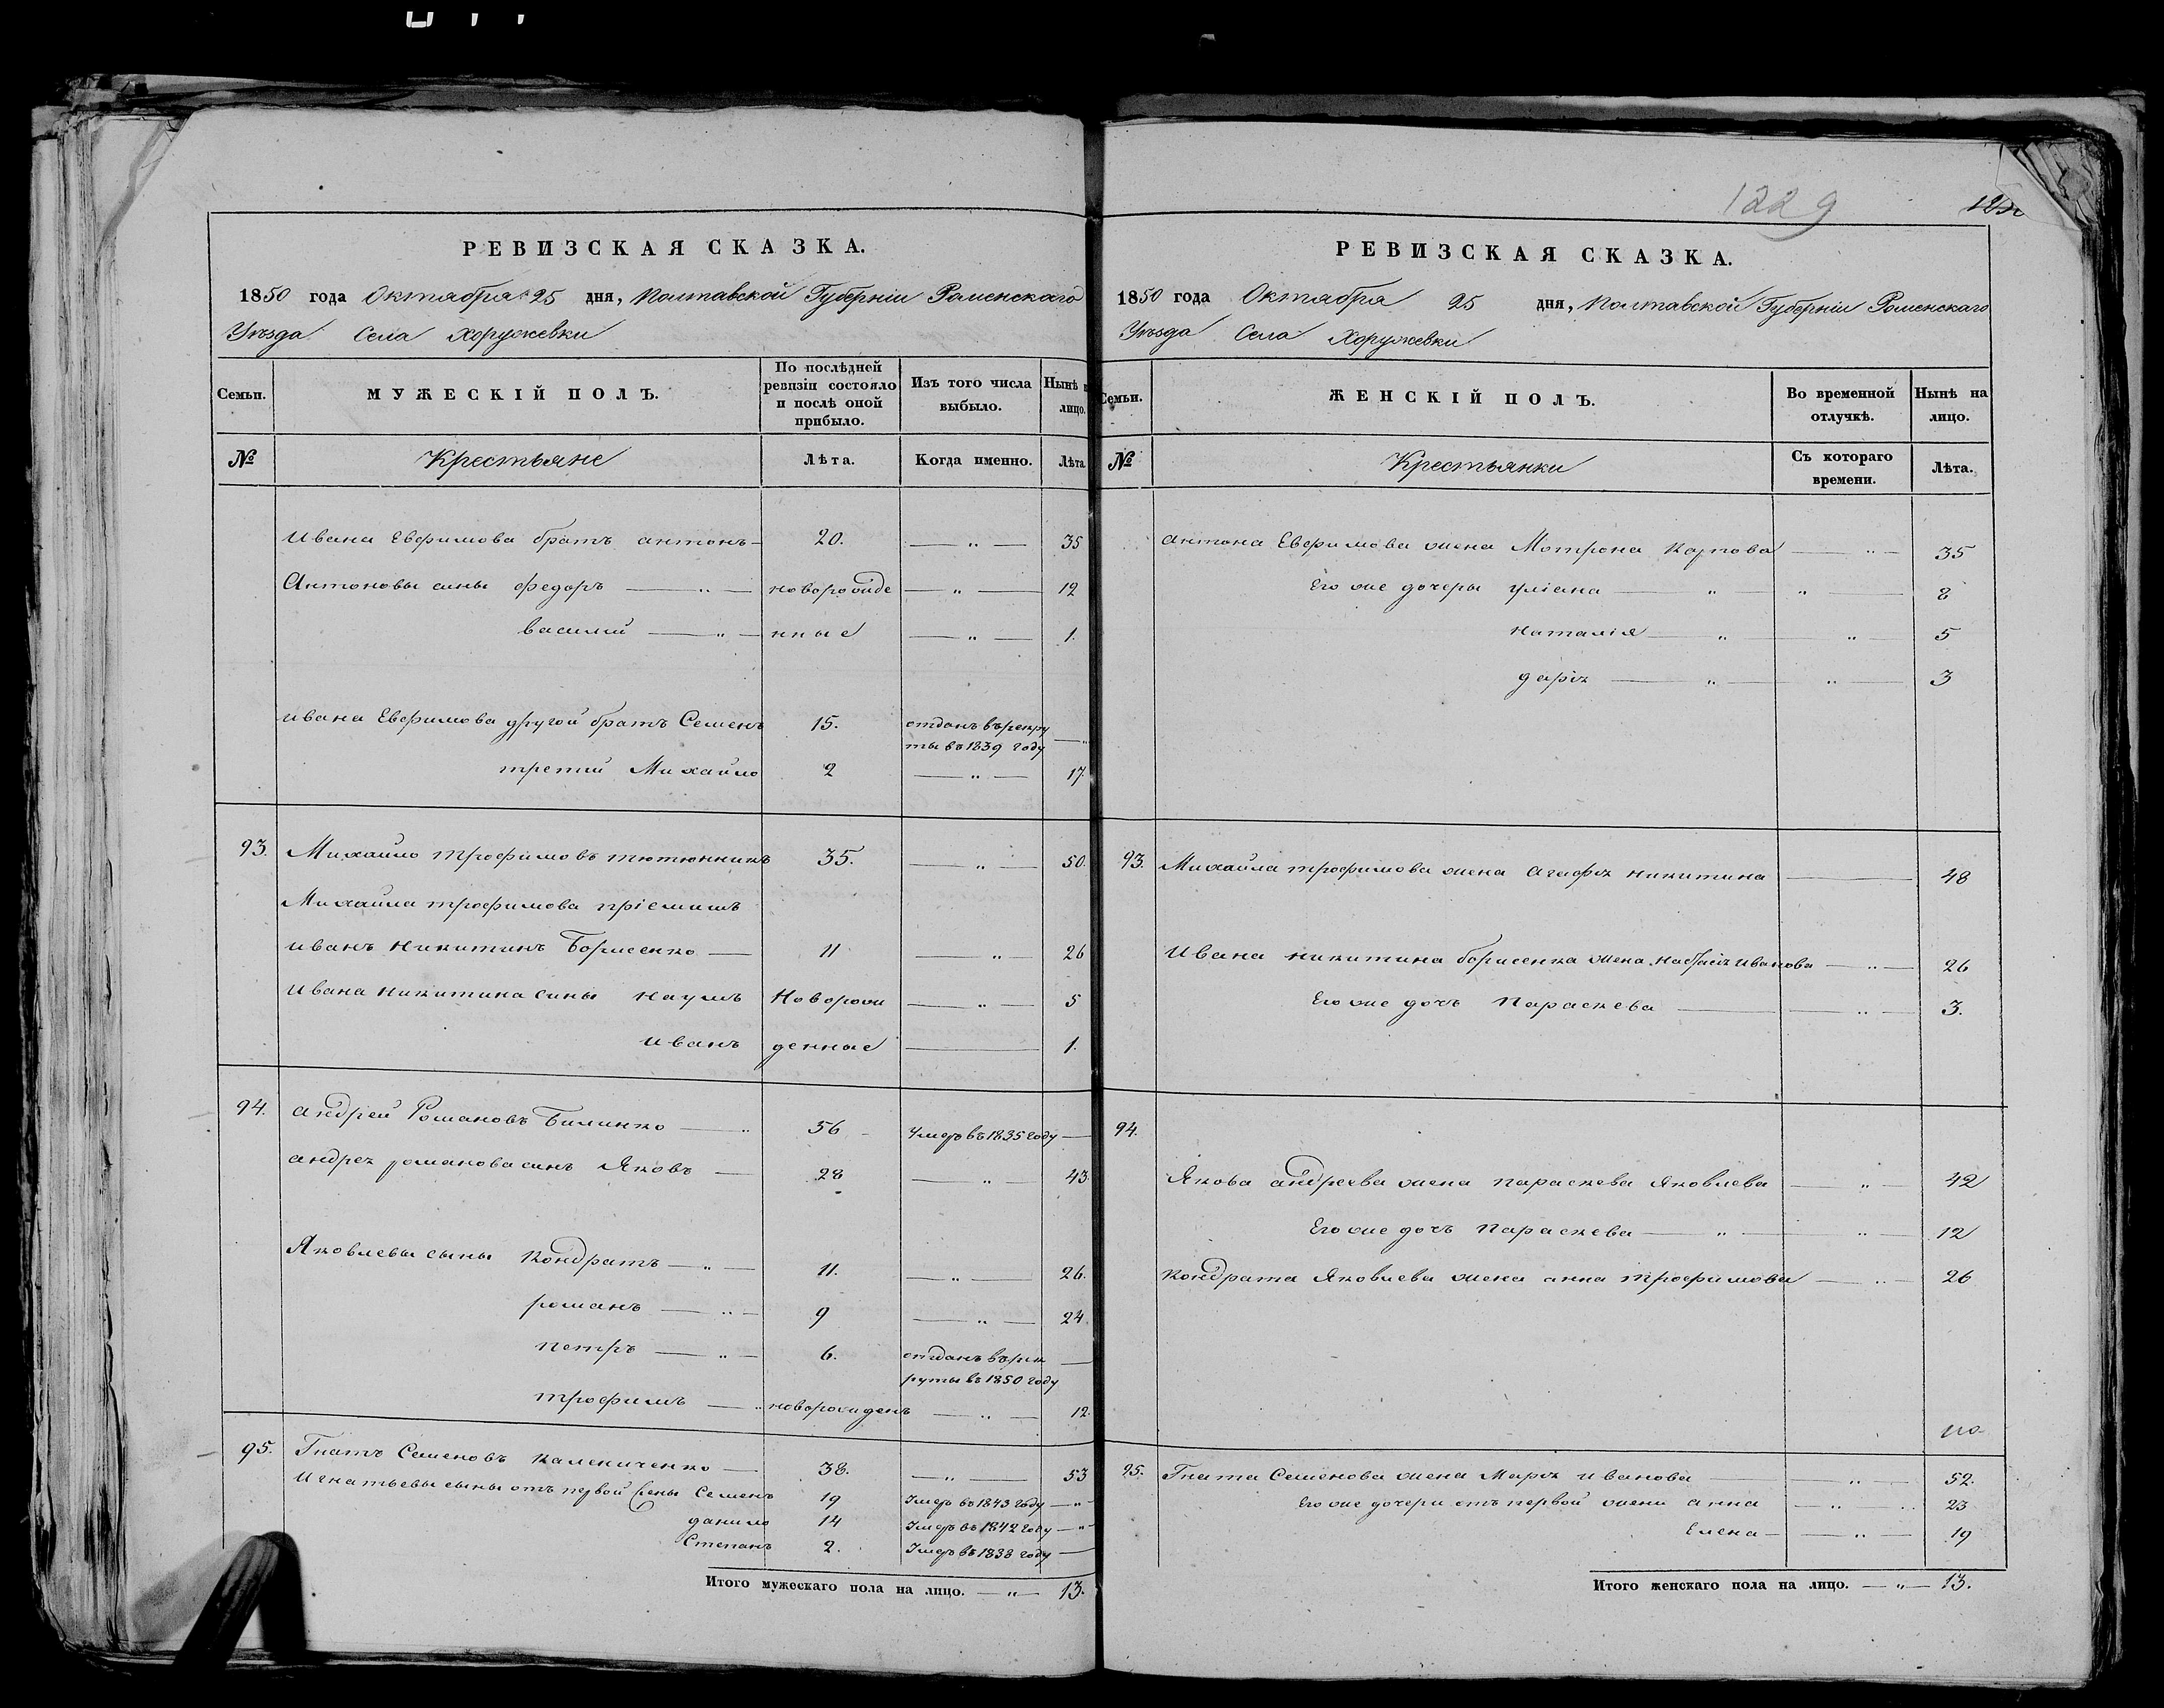 РЕВИЗСКАЯ СКАЗКА.
1850 года Октября 25 дня, Полтавской Губерніи Роменскаго
Уѣзда Села Хоружевки
Семьи. МУЖЕСКІЙ ПОЛЪ. По послѣдней ревизіи состояло и послѣ оной прибыло. Изъ того числа выбыло. Нынѣ лицо.
№ Крестьяне Лѣта. Когда именно. Лѣта
Ивана Евфимова братъ антонъ — 20. — „ — 35
Антоновы сины федоръ — „ — новорожде — „ — 12
василий — „ — нные — „ — 1.
ивана Евфимова другой братъ Семенъ 15. отданъ въ рекру
ты въ 1839 году — „
третий Михайло 2 — „ — 17.
93. Михайло трофимовъ тютюнникъ 35. — „ — 50.
Михайла трофимова пріемишъ
иванъ никитинъ Борисенко — 11 — „ — 26
ивана никитина сины наумъ Новорож — „ — 5
иванъ денные — 1.
94. андрей Романовъ Билинко — „ 56 – Умеръ въ 1835 году —
андрея романова синъ Яковъ — 28 — „ — 43.
Яковлевы сыны Кондратъ — „ — 11. — „ — 26.
романъ — „ — 9 — „ — 24.
петръ — „ — 6. отданъ въ рек —
руты въ 1850 году
трофимъ — „ новорожденъ — „ — 12.
95. Гнатъ Семеновъ Калениченко — 38. — „ — 53
Игнатьевы сыны отъ первой жены Семенъ 19 Умеръ въ 1843 году — „
данило 14 Умеръ въ 1842 году — „
Степанъ 2. Умеръ въ 1838 году —
Итого мужескаго пола на лицо. — „ — 13.
1229
РЕВИЗСКАЯ СКАЗКА.
1850 года Октября 25 дня, Полтавской Губерніи Роменскаго
Уѣзда Села Хоружевки
Семьи. ЖЕНСКІЙ ПОЛЪ. Во временной отлучкѣ. Нынѣ на лицо.
№ Крестьянки Съ котораго времени. Лѣта.
антона Евфимова жена Мотрона Карпова — „ — 35
Его же дочеры уліана — „ — „ — 8
наталія — „ — „ — 5
дарія — „ — „ — 3
93. Михайла трофимова жена Агафія никитина — 48
Ивана никитина борисенка жена Настасія иванова — „ — 26
Его же дочъ Параскева — „ — 3.
94.
Якова андреева жена параскева яковлева — „ — 42
Его же дочъ параскева — „ — „ — 12
Кондрата Яковлева жена анна трофимова — „ — 26
95. Гната Семенова жена Марія иванова „ — 52.
Его же дочери отъ первой жени анна — „ — 23
Елена — „ — 19
Итого женскаго пола на лицо. — „ — 13.